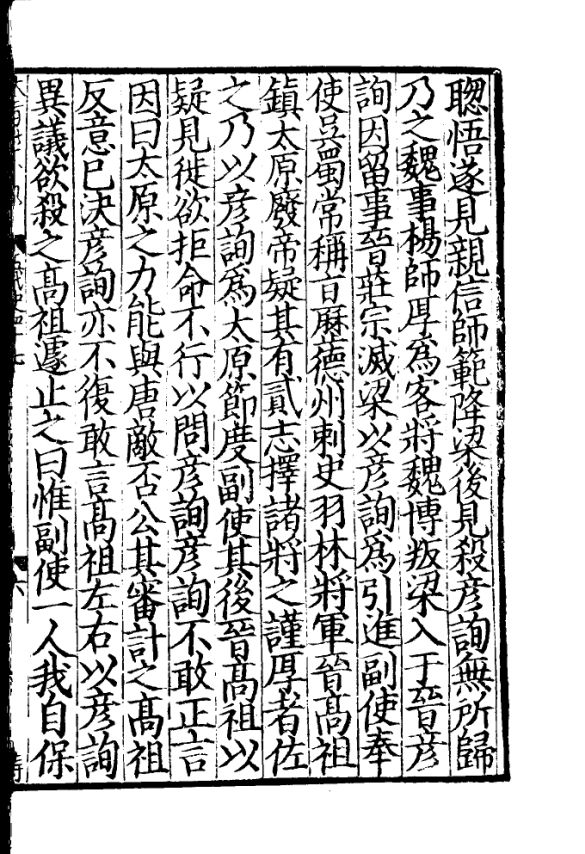 聦悟遂見親信師範降梁後見殺彦詢無所歸
乃之魏事楊師厚爲客將魏博叛梁入于晉彦
詢因留事晉莊宗滅梁以彦詢爲引進副使奉
使吳蜀常稱旨歷德州刺史羽林將軍晉髙祖
鎮太原廢帝疑其有貳志擇諸將之謹厚者佐
之乃以彦詢爲太原節度副使其後晉髙祖以
疑見徙欲拒命不行以問彦詢彦詢不敢正言
因曰太原之力能與唐敵否公其審計之髙祖
反意已決彦詢亦不復敢言髙祖左右以彦詢
異議欲殺之髙祖遽止之曰惟副使一人我自保
六